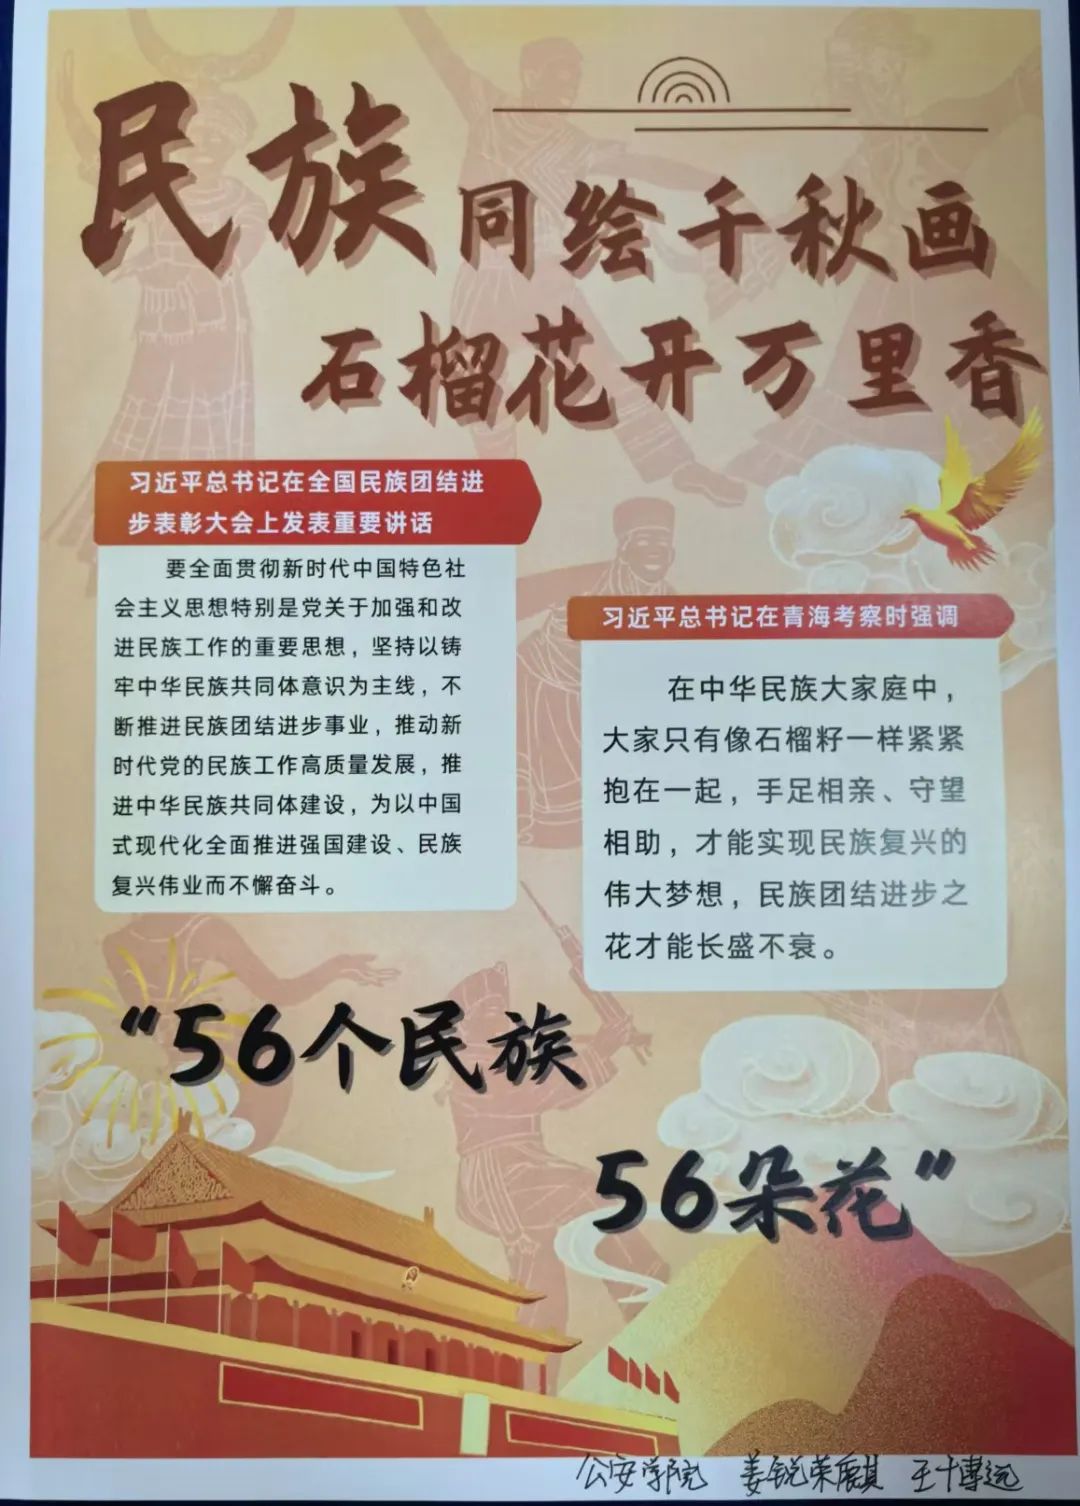 民族同绘千秋画
石榴花开万里香
习近平总书记在全国民族团结进
步表彰大会上发表重要讲话
要全面贯彻新时代中国特色社
会主义思想特别是党关于加强和改
进民族工作的重要思想，坚持以铸
牢中华民族共同体意识为主线，不
断推进民族团结进步事业，推动新
时代党的民族工作高质量发展，推
进中华民族共同体建设，为以中国
式现代化全面推进强国建设、民族
复兴伟业而不懈奋斗。
习近平总书记在青海考察时强调
在中华民族大家庭中，
大家只有像石榴籽一样紧紧
抱在一起，手足相亲、守望
相助，才能实现民族复兴的
伟大梦想，民族团结进步之
花才能长盛不衰。
“56个民族
56朵花”
公安学院 姜锐荣麒